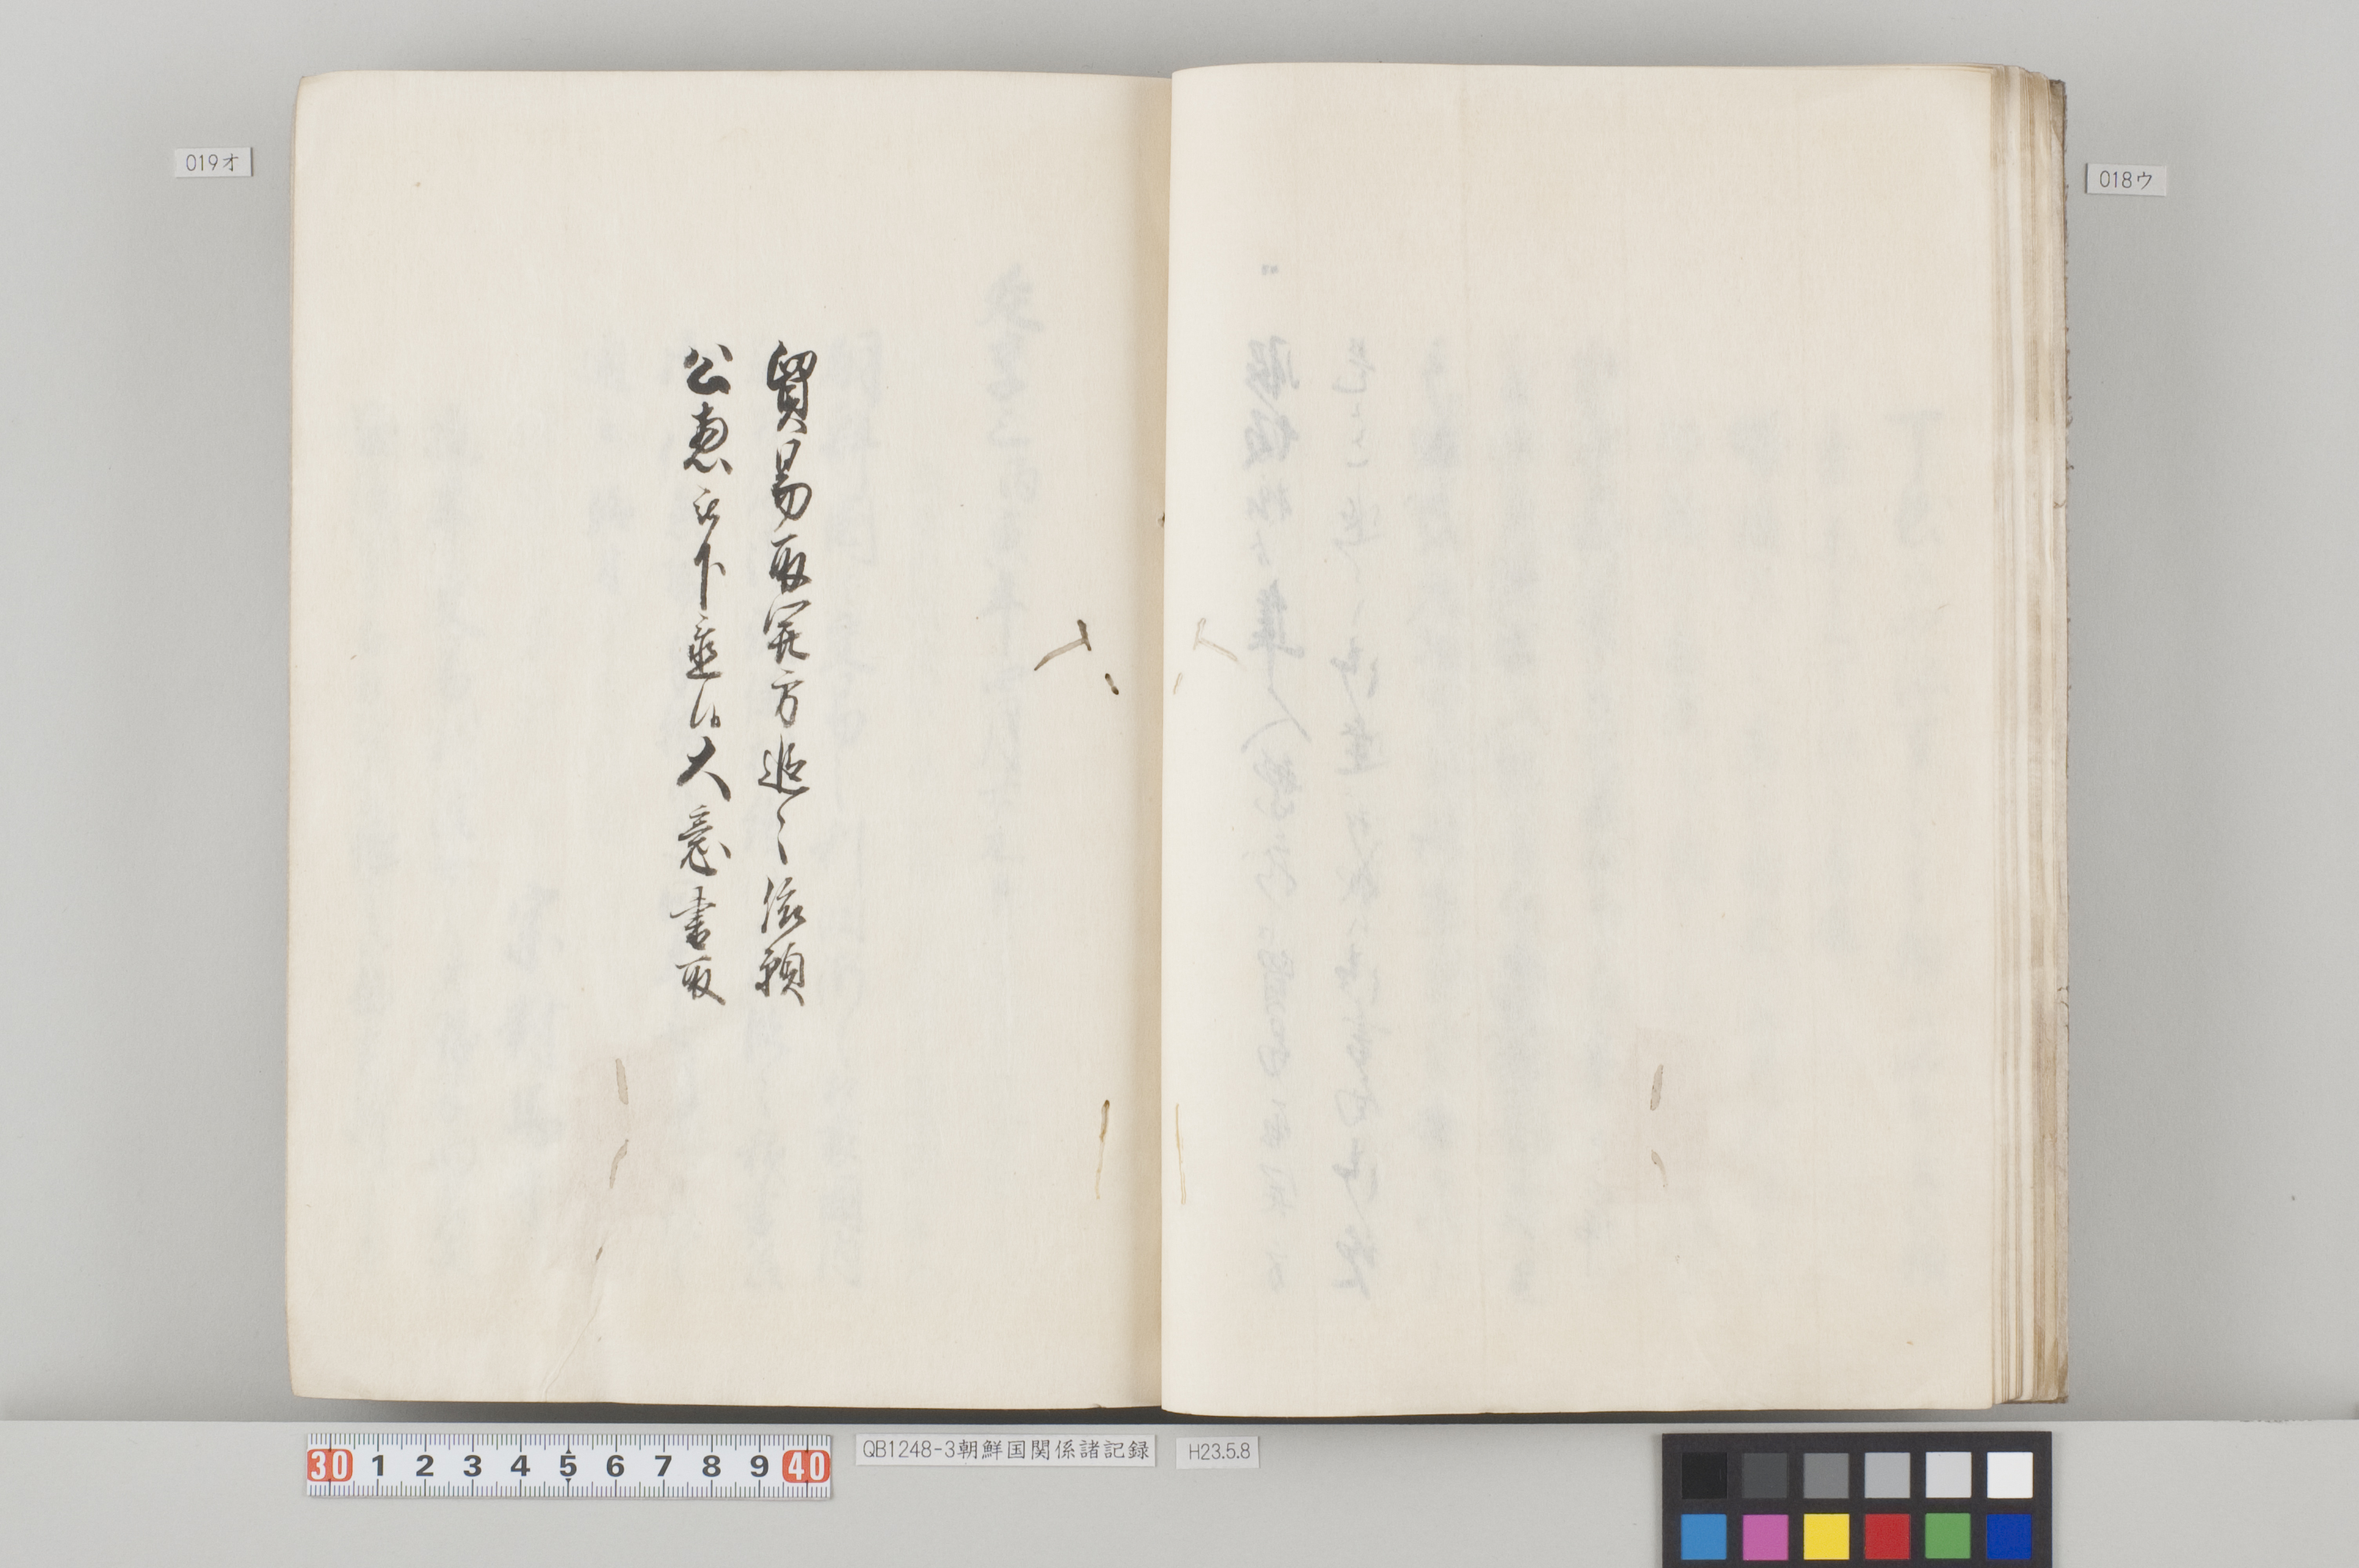 018ウ
019オ
貿易取開方追々依願
公恵被下置候大意書取
30 1 2 3 4 5 6 7 8 9 40
QB1248-3朝鮮国関係諸記録
H23.5.8